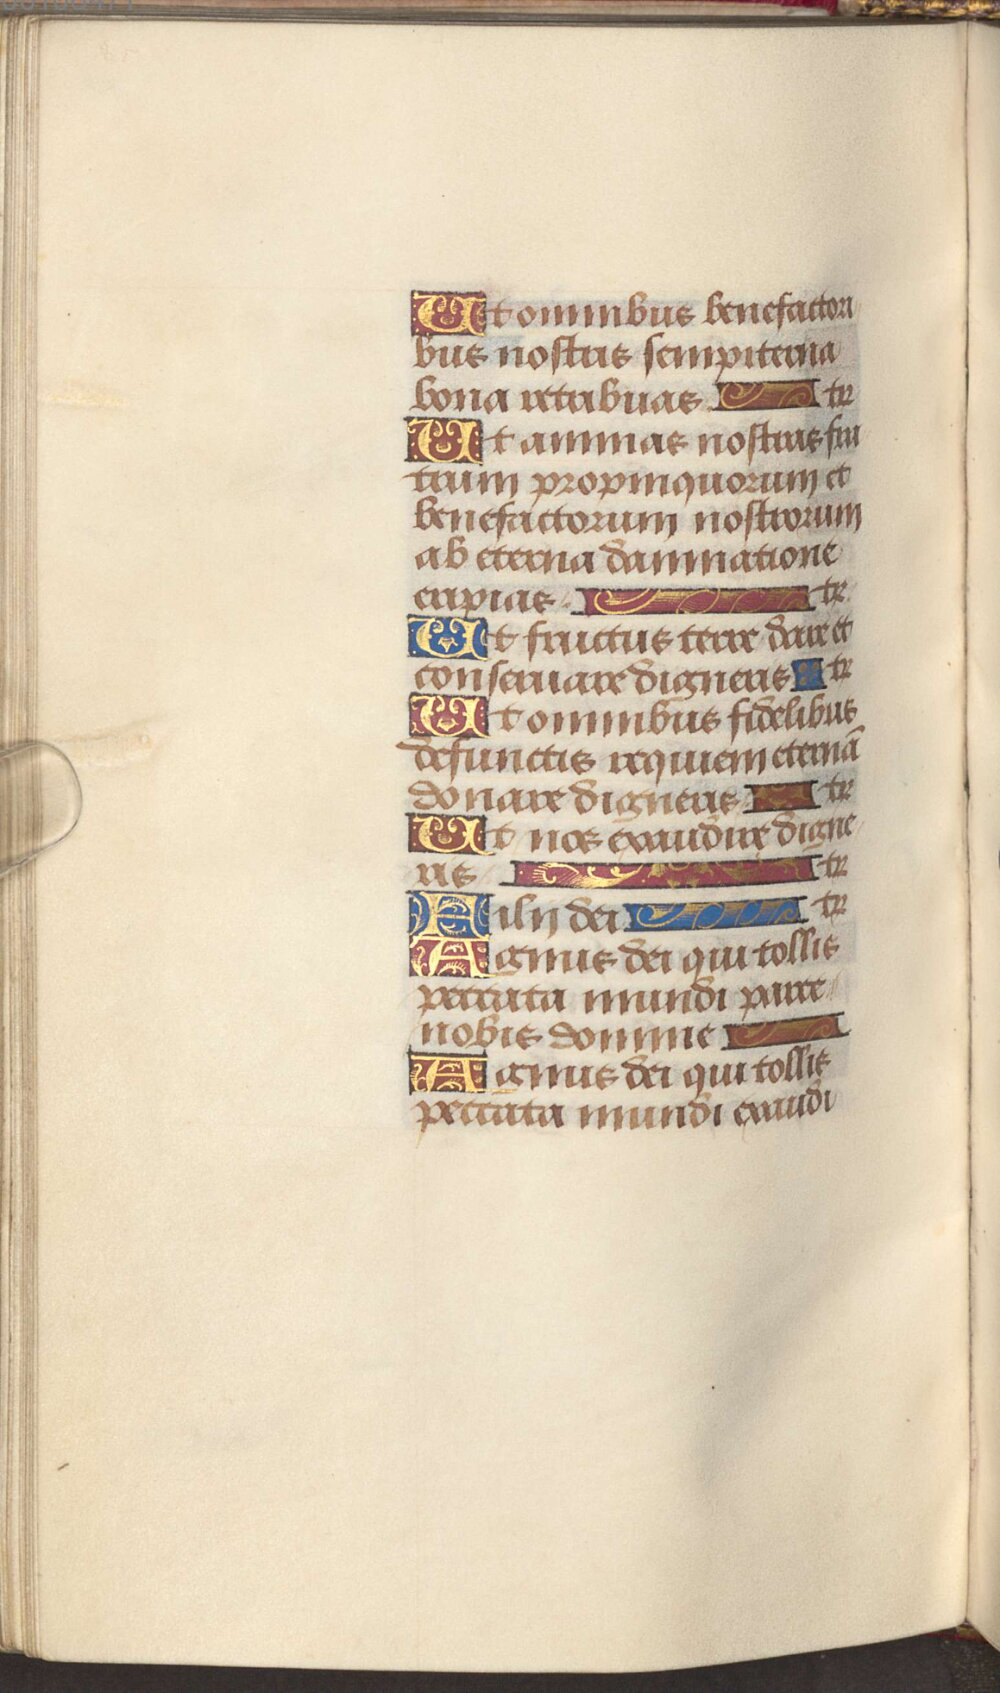 Ut omnibus benefactori
bus nostris sempiterna
bona retribuas tr
Ut animas nostras fra
trum propinquorum et
benefactorum nostrorum
ab eterna damnatione
eripias tr
Ut fructus terre dare et
conseruare digneris tr
Ut omnibus fidelibus
defunctis requiem eternā
donare digneris tr
Ut nos exaudire digne
ris tr
Filij dei tr
Agnus dei qui tollis
peccata mundi parce
nobis domine
Agnus dei qui tollis
peccata mundi exaudi